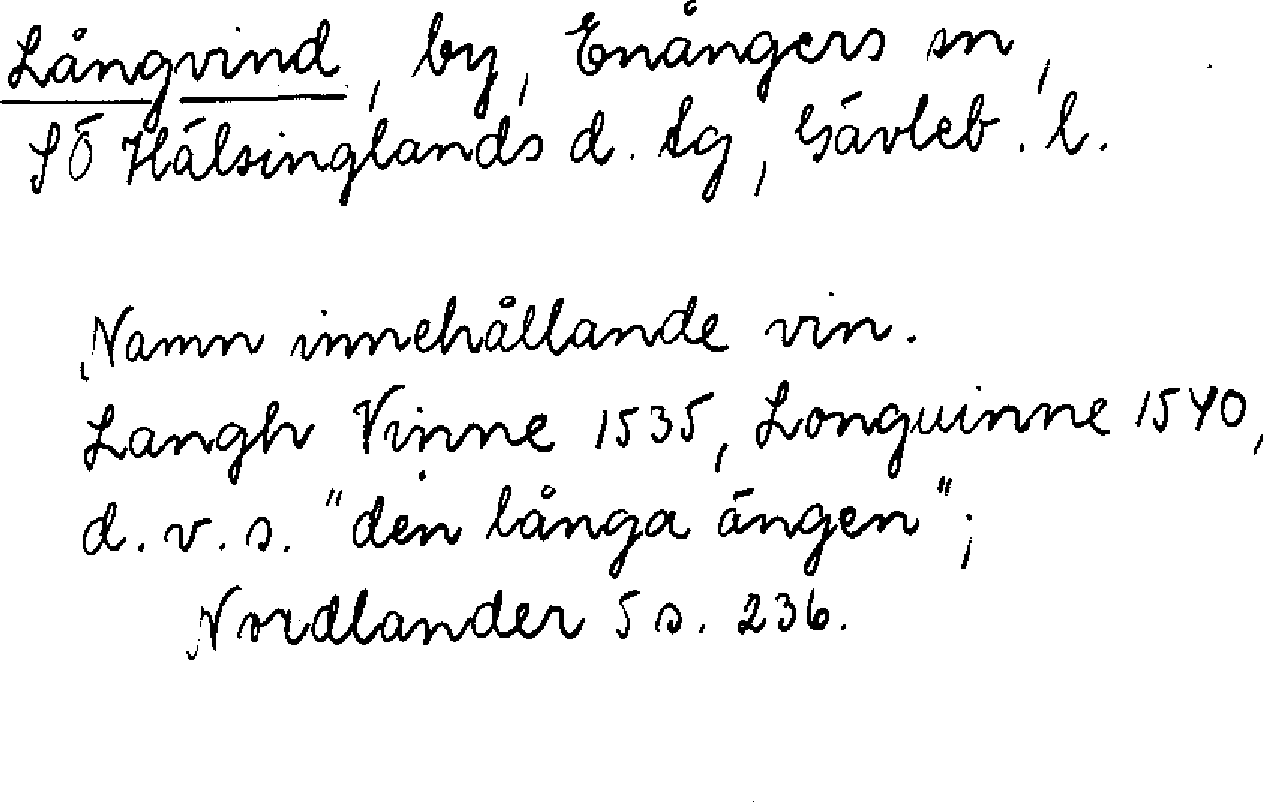 Långvind, by, Enångers sn,
SÖ Hälsinglands d. tg, Gävleb. l.
Namn innehållande vin.
Langh Vinne 1535, Longuinne 1540,
d. v. s. "den långa ängen";
Nordlander 5 s. 236.